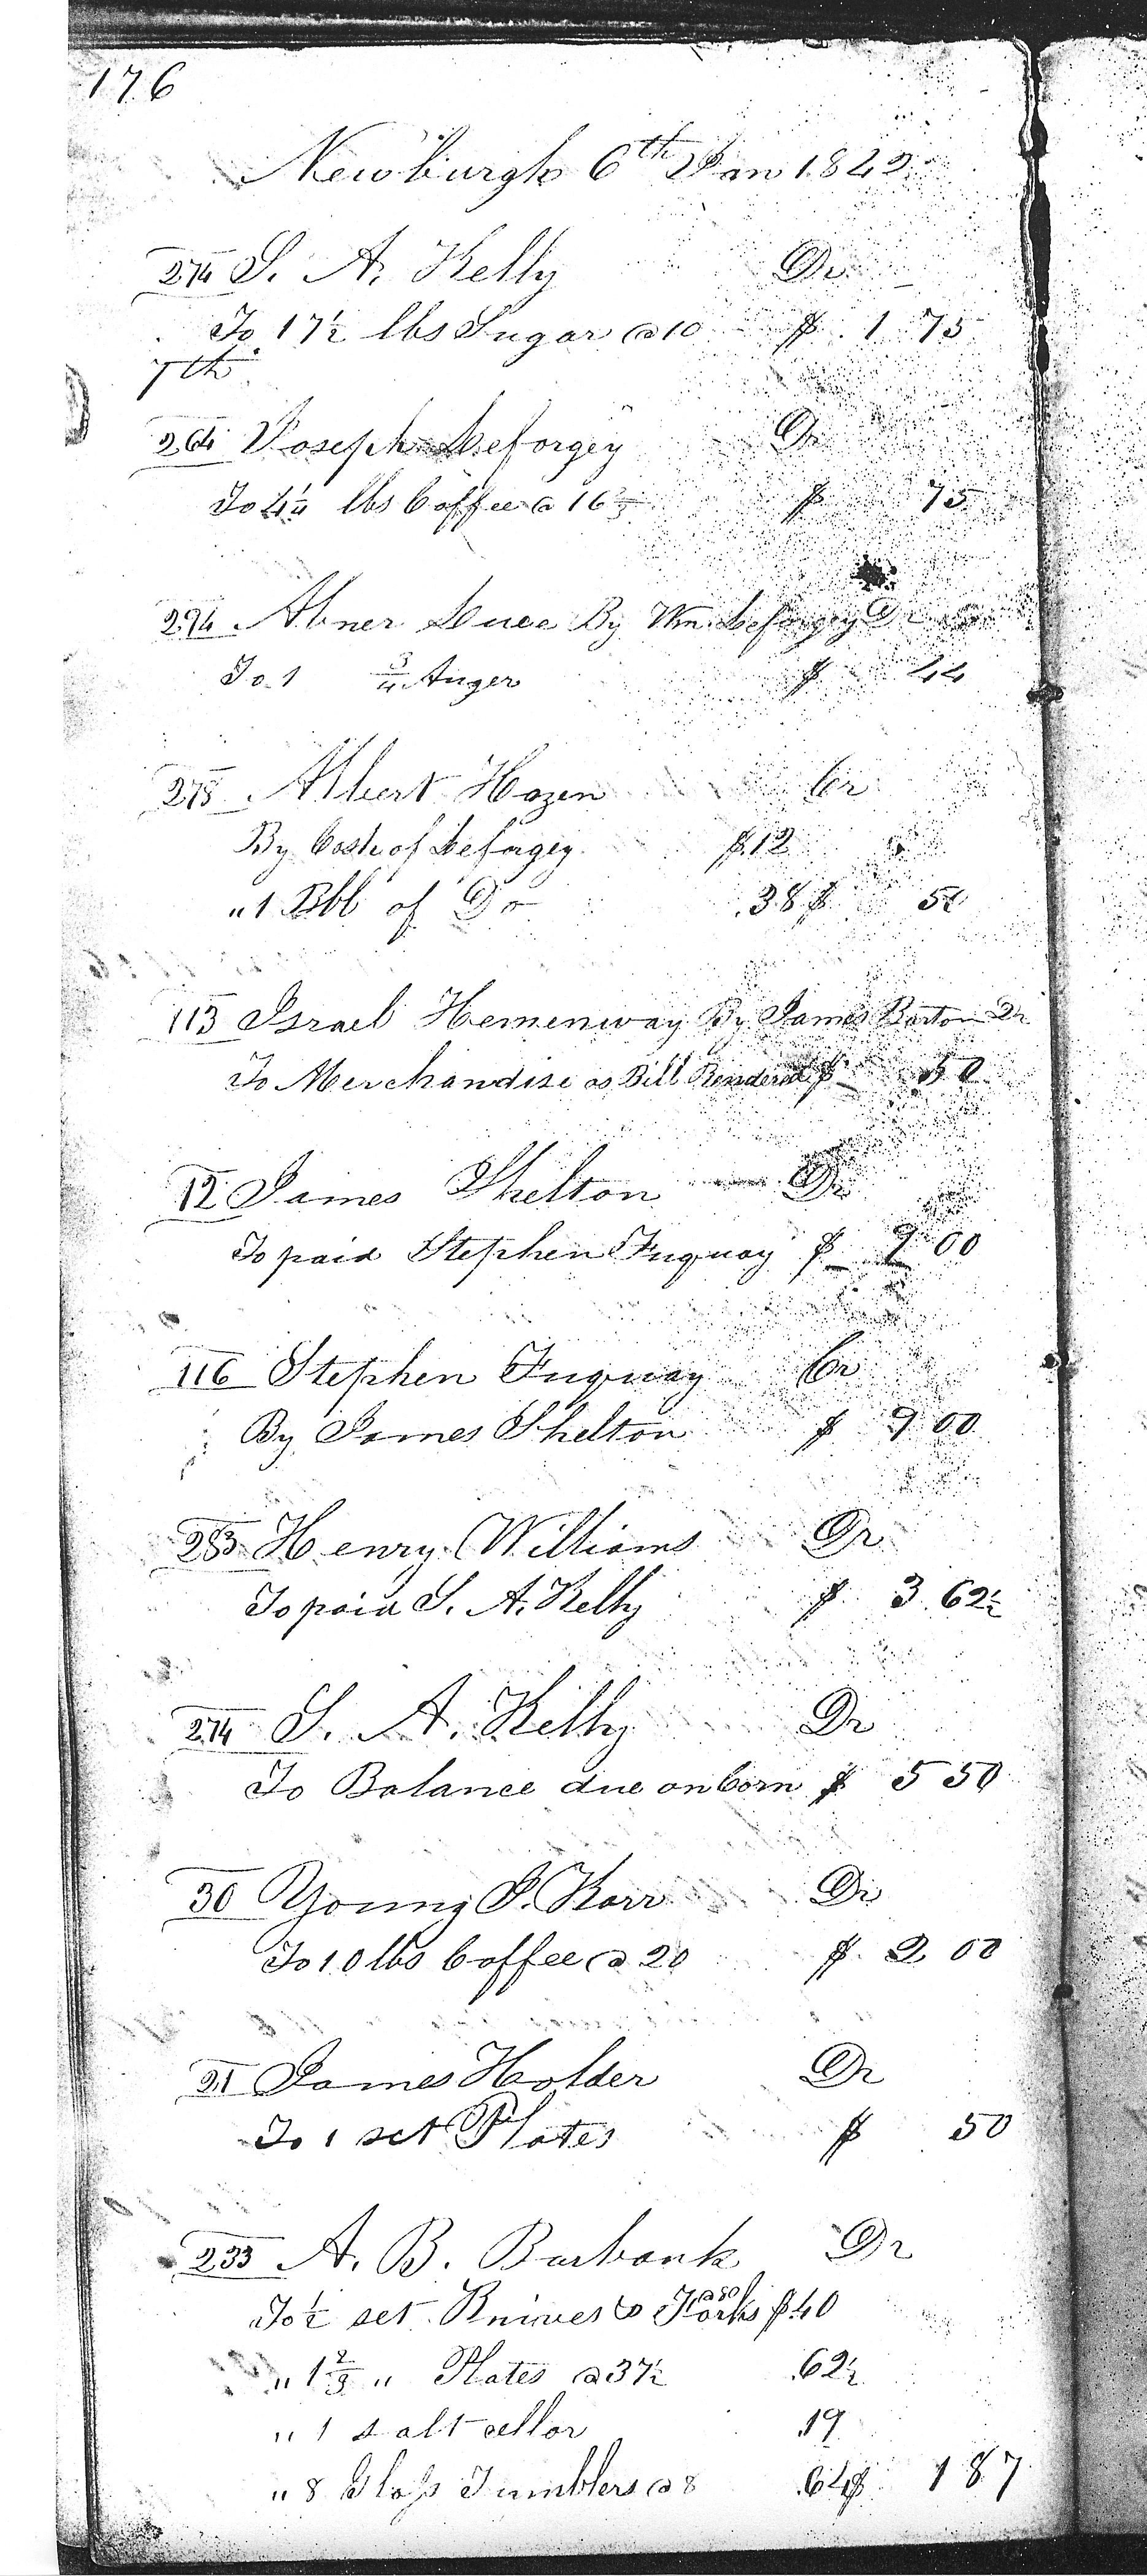 176
Newburgh 6th Jan 1842
274 S. A. Kelly Dr
To 17½ lbs Sugar @ 10 $ 1 75
7th
264 Joseph Deforgey Dr
To 4½ lbs Coffee @ 16⅔ $ 75
294 Abner Luce By Wm. Leforgey Dr
To 1 ¾ Auger $ 44
278 Albert Hazen Cr
By Cash of Leforgey $.12
" 1 Bbl of Do .38 $ 50
113 Israel Hemenway By James Barton Dr
To Merchandise as Bill Rendered $ 50
12 James Shelton Dr
To paid Stephen Fuquay $ 9 00
116 Stephen Fuquay Cr
By James Shelton $ 9 00
283 Henry Williams Dr
To paid S. A. Kelly $ 3 62½
274 S. A. Kelly Dr
To Balance due on Corn $ 5 50
30 Young J. Karr Dr
To 10 lbs Coffee @ 20 $ 2 00
21 James Holder Dr
To 1 set Plates $ 50
233 A. B. Burbank Dr
To ½ set Knives & Forks @ 80 $.40
" 1⅔ " Plates @ 37½ .62½
" 1 salt cellor .19
" 8 Glass Tumblers @ 8 .64 $ 1 87